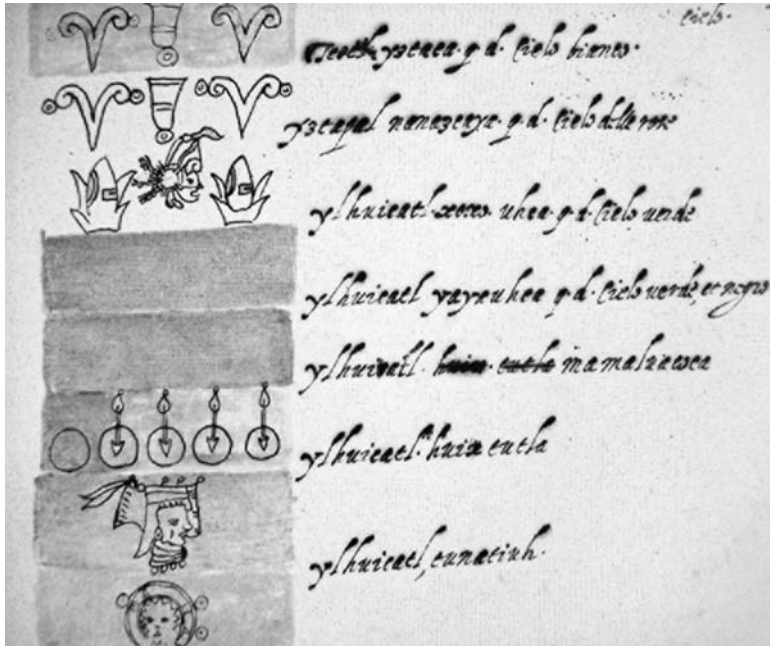 cielo.
Teotl. yztaca. q. d. Cielo bianco.
yztapal nanazcaya. q. d. Cielo delle rose
ylhuicatl. xoxo. uhca. q. d. Cielo verde
ylhuicatl yayauhca q. d. Cielo verde, et negro
ylhuicatl. mamaluacoca
ylhuicatl. huixtutla
ylhuicatl, tunatiuh.